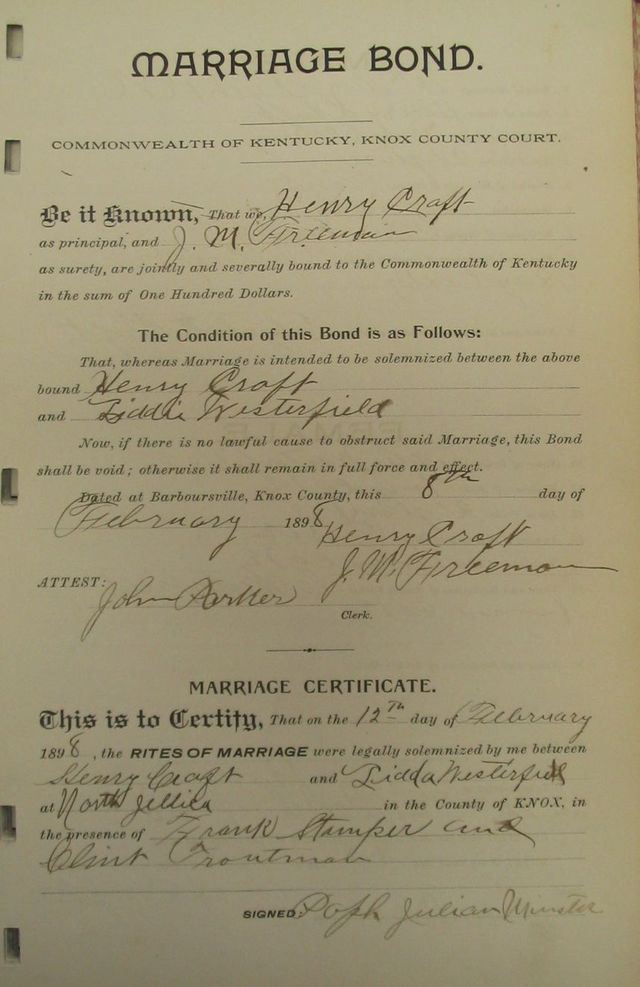 MARRIAGE BOND.
COMMONWEALTH OF KENTUCKY, KNOX COUNTY COURT.
Be it Known, That we, Henry Craft
as principal, and J. M. Freeman
as surety, are jointly and severally bound to the Commonwealth of Kentucky
in the sum of One Hundred Dollars.
The Condition of this Bond is as Follows:
That, whereas Marriage is intended to be solemnized between the above
bound Henry Craft
and Liddie Westerfield
Now, if there is no lawful cause to obstruct said Marriage, this Bond
shall be void; otherwise it shall remain in full force and effect.
Dated at Barboursville, Knox County, this 8th day of
February 1898
Henry Craft
J. M. Freeman
ATTEST: John Parker
Clerk.
MARRIAGE CERTIFICATE.
This is to Certify, That on the 12th day of February
1898, the RITES OF MARRIAGE were legally solemnized by me between
Henry Craft and Lidda Westerfield
at North Jellico in the County of KNOX, in
the presence of Frank Stamper and
Clint Troutman
SIGNED: Julian Minster